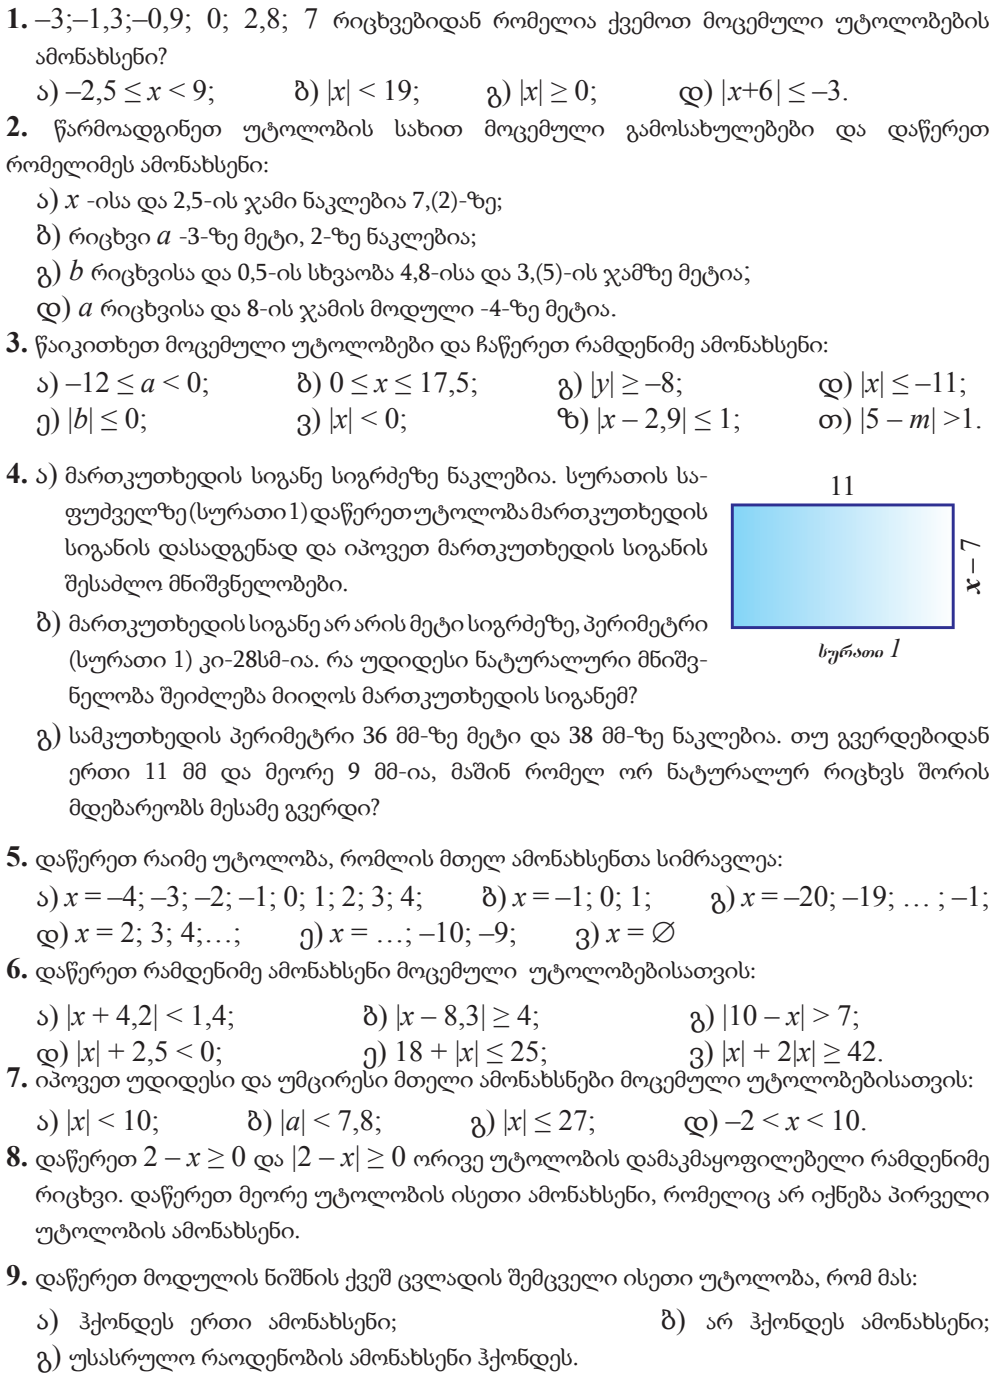 1. –3;–1,3;–0,9; 0; 2,8; 7 რიცხვებიდან რომელია ქვემოთ მოცემული უტოლობების
ამონახსენი?
ა) –2,5 ≤ x < 9; ბ) |x| < 19; გ) |x| ≥ 0; დ) |x+6| ≤ –3.
2. წარმოადგინეთ უტოლობის სახით მოცემული გამოსახულებები და დაწერეთ
რომელიმეს ამონახსენი:
ა) x -ისა და 2,5-ის ჯამი ნაკლებია 7,(2)-ზე;
ბ) რიცხვი a -3-ზე მეტი, 2-ზე ნაკლებია;
გ) b რიცხვისა და 0,5-ის სხვაობა 4,8-ისა და 3,(5)-ის ჯამზე მეტია;
დ) a რიცხვისა და 8-ის ჯამის მოდული -4-ზე მეტია.
3. წაიკითხეთ მოცემული უტოლობები და ჩაწერეთ რამდენიმე ამონახსენი:
ა) –12 ≤ a < 0; ბ) 0 ≤ x ≤ 17,5; გ) |y| ≥ –8; დ) |x| ≤ –11;
ე) |b| ≤ 0; ვ) |x| < 0; ზ) |x – 2,9| ≤ 1; თ) |5 – m| >1.
4. ა) მართკუთხედის სიგანე სიგრძეზე ნაკლებია. სურათის სა-
ფუძველზე (სურათი 1) დაწერეთ უტოლობა მართკუთხედის
სიგანის დასადგენად და იპოვეთ მართკუთხედის სიგანის
შესაძლო მნიშვნელობები.
11
x – 7
სურათი 1
ბ) მართკუთხედის სიგანე არ არის მეტი სიგრძეზე, პერიმეტრი
(სურათი 1) კი-28სმ-ია. რა უდიდესი ნატურალური მნიშვ-
ნელობა შეიძლება მიიღოს მართკუთხედის სიგანემ?
გ) სამკუთხედის პერიმეტრი 36 მმ-ზე მეტი და 38 მმ-ზე ნაკლებია. თუ გვერდებიდან
ერთი 11 მმ და მეორე 9 მმ-ია, მაშინ რომელ ორ ნატურალურ რიცხვს შორის
მდებარეობს მესამე გვერდი?
5. დაწერეთ რაიმე უტოლობა, რომლის მთელ ამონახსენთა სიმრავლეა:
ა) x = –4; –3; –2; –1; 0; 1; 2; 3; 4; ბ) x = –1; 0; 1; გ) x = –20; –19; … ; –1;
დ) x = 2; 3; 4;…; ე) x = …; –10; –9; ვ) x = ∅
6. დაწერეთ რამდენიმე ამონახსენი მოცემული უტოლობებისათვის:
ა) |x + 4,2| < 1,4; ბ) |x – 8,3| ≥ 4; გ) |10 – x| > 7;
დ) |x| + 2,5 < 0; ე) 18 + |x| ≤ 25; ვ) |x| + 2|x| ≥ 42.
7. იპოვეთ უდიდესი და უმცირესი მთელი ამონახსნები მოცემული უტოლობებისათვის:
ა) |x| < 10; ბ) |a| < 7,8; გ) |x| ≤ 27; დ) –2 < x < 10.
8. დაწერეთ 2 – x ≥ 0 და |2 – x| ≥ 0 ორივე უტოლობის დამაკმაყოფილებელი რამდენიმე
რიცხვი. დაწერეთ მეორე უტოლობის ისეთი ამონახსენი, რომელიც არ იქნება პირველი
უტოლობის ამონახსენი.
9. დაწერეთ მოდულის ნიშნის ქვეშ ცვლადის შემცველი ისეთი უტოლობა, რომ მას:
ა) ჰქონდეს ერთი ამონახსენი; ბ) არ ჰქონდეს ამონახსენი;
გ) უსასრულო რაოდენობის ამონახსენი ჰქონდეს.